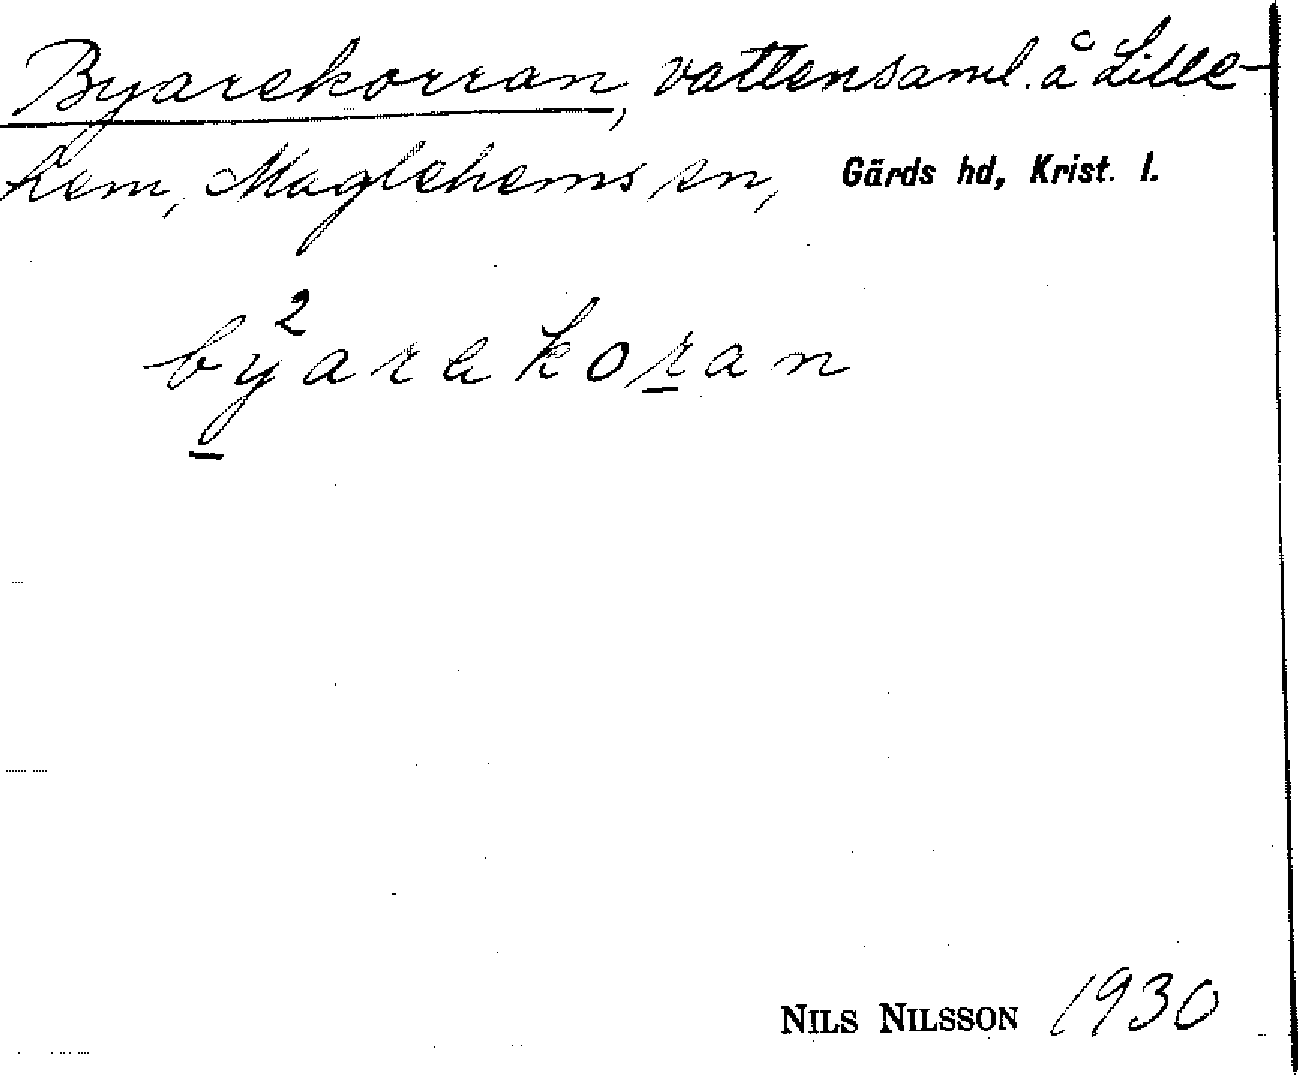 Byarekorran, vattensaml. å Lille-
hem, Maglehems sn, Gärds hd, Krist. l.
by²arekoran
NILS NILSSON 1930